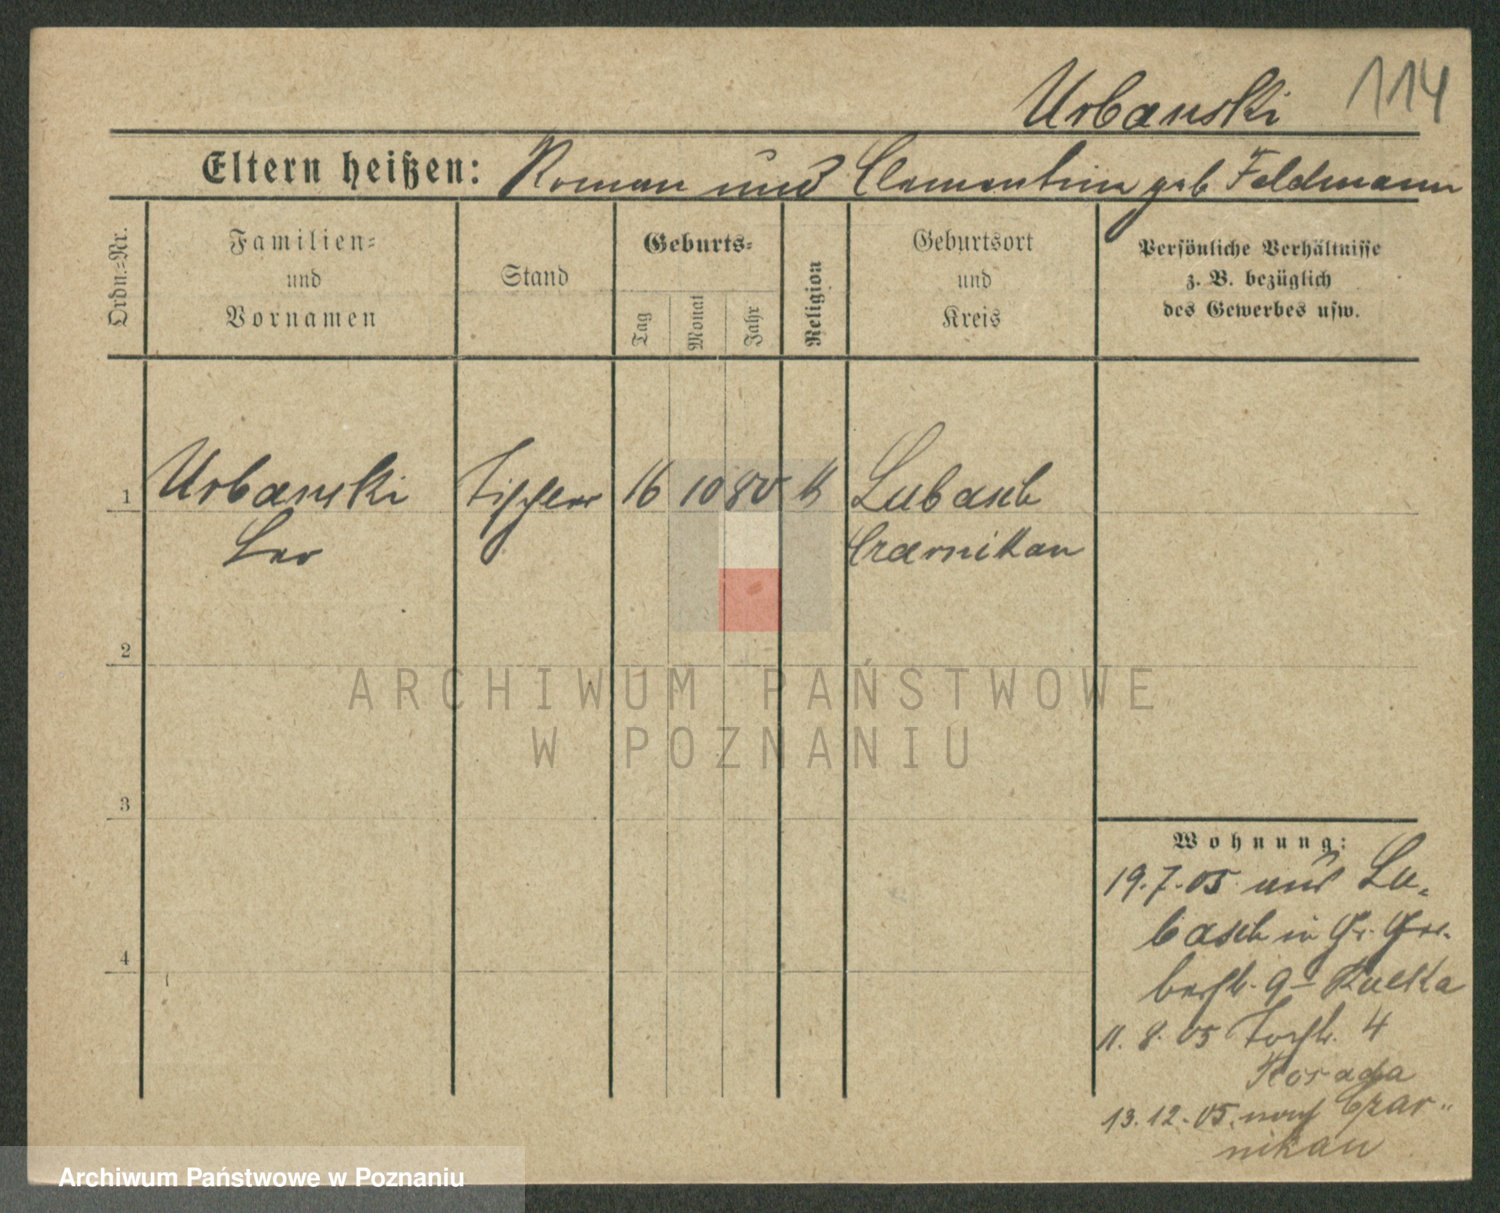 Urbanski 114
Eltern heißen: Roman und Clementine geb Feldmann
Ordn.=Nr.
Familien=
und
Vornamen
Stand
Geburts=
Tag
Monat
Jahr
Religion
Geburtsort
und
Kreis
Persönliche Verhältnisse
z. B. bezüglich
des Gewerbes usw.
1 Urbanski Tischler 16 10 80 k Lubasch
Leo Czarnikau
2
ARCHIWUM PAŃSTWOWE
W POZNANIU
3
4
Wohnung:
19.7.05 aus Lu-
basch in Gr. Ger-
berstr. 9
11. 8. 05 Torstr. 4
13. 12. 05. nach Czar-
nikau
Archiwum Państwowe w Poznaniu